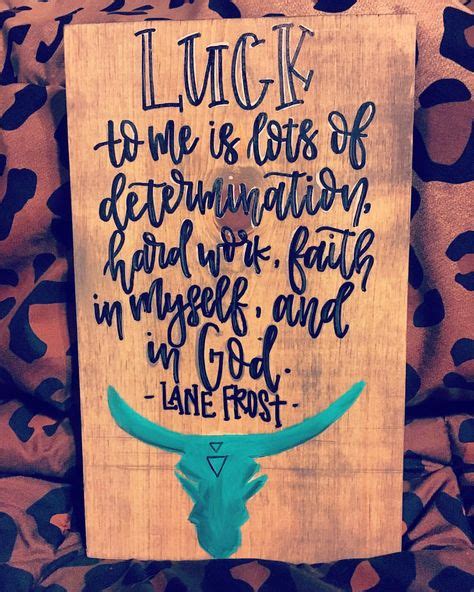 LUCK
to me is lots of
determination,
hard work, faith
in myself, and
in God.
- LANE FROST -